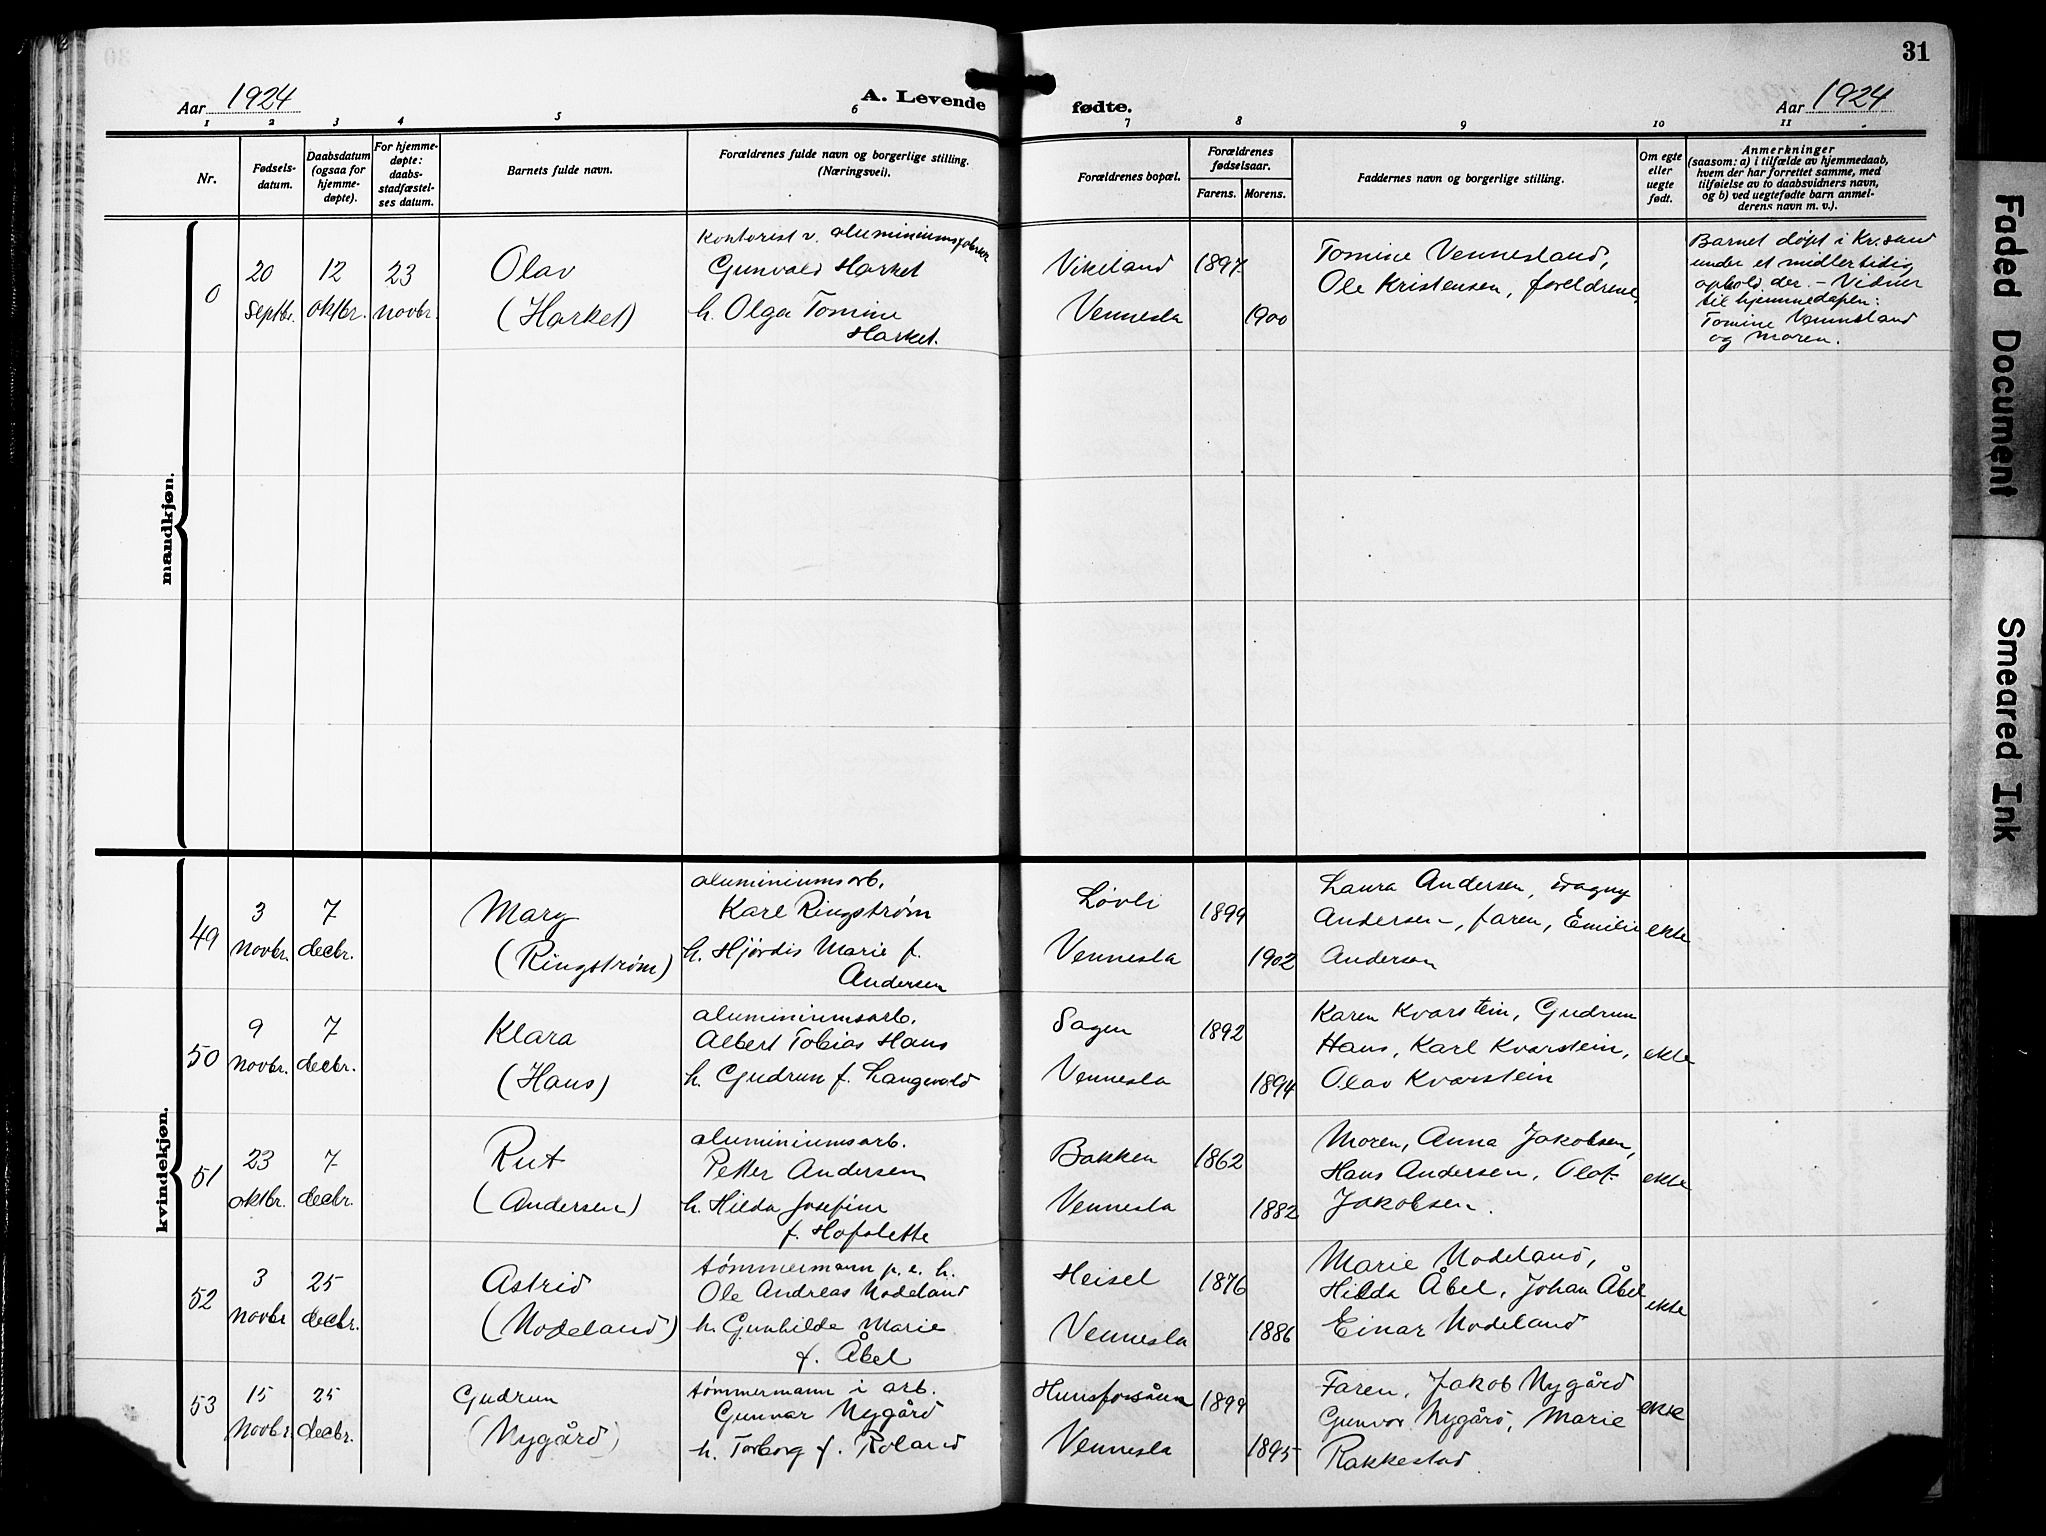 31
Aar 1924
A. Levende fødte.
Aar 1924
1 2 3 4 5 6 7 8 9 10 11
Nr.
Fødsels-
datum.
Daabsdatum
(ogsaa for
hjemme-
døpte).
For hjemme-
døpte:
daabs-
stadfæstel-
ses datum.
Barnets fulde navn.
Forældrenes fulde navn og borgerlige stilling.
(Næringsvei).
Forældrenes bopæl.
Forældrenes
fødselsaar.
Farens. Morens.
Faddernes navn og borgerlige stilling.
Om egte
eller
uegte
født.
Anmerkninger
(saasom: a) i tilfælde av hjemmedaab,
hvem der har forrettet samme, med
tilføielse av to daabsvidners navn,
og b) ved uegtefødte barn anmel-
derens navn m. v.).
mandkjøn.
0
20
Septbr.
12
oktbr.
23
novbr.
Olav
(Harket)
Kontorist v. aluminiumsfabrik
Gunvald Harket
h. Olga Tomine
Harket.
Vikeland
Vennesla
1897
1900
Tomine Vennesland,
Ole Kristensen, foreldrene,
Barnet døpt i Kr.sand
under et midlertidig
ophold der. – Vidner
til hjemmedåpen:
Tomine Vennesland
og moren.
kvindekjøn.
49
3
novbr.
7
decbr.
Mary
(Ringstrøm)
aluminiumsarb.
Karl Ringstrøm
h. Hjørdis Marie f.
Andersen
Løvli
Vennesla
1899
1902
Laura Andersen, Dagny
Andersen, faren, Emilie
Andersen
ekte
50
9
novbr.
7
decbr.
Klara
(Haus)
aluminiumsarb.
Albert Tobias Haus
h. Gudrun f. Langevold
Sagen
Vennesla
1892
1894
Karen Kvarstein, Gudrun
Haus, Karl Kvarstein,
Olav Kvarstein
ekte
51
23
oktbr.
7
decbr.
Rut
(Andersen)
aluminiumsarb.
Petter Andersen
h. Hilda Josefine
f. Hofslette
Bakken
Vennesla
1862
1882
Moren, Anna Jakobsen,
Hans Andersen, Olaf
Jakobsen.
ekte
52
3
novbr
25
decbr.
Astrid
(Nodeland)
tømmermann p. e. h.
Ole Andreas Nodeland
h. Gunhilde Marie
f. Åbel
Heisel
Vennesla
1876
1886
Marie Nodeland,
Hilda Åbel, Johan Åbel
Einar Nodeland
ekte
53
15
novbr.
25
decbr.
Gudrun
(Nygård)
tømmermann i arb.
Gunvar Nygård
h. Torborg f. Roland
Hunsforsåsen
Vennesla
1899
1895
Faren, Jakob Nygård
Gunvor Nygård, Marie
Rakkestad
ekte
Faded Document
Smeared Ink